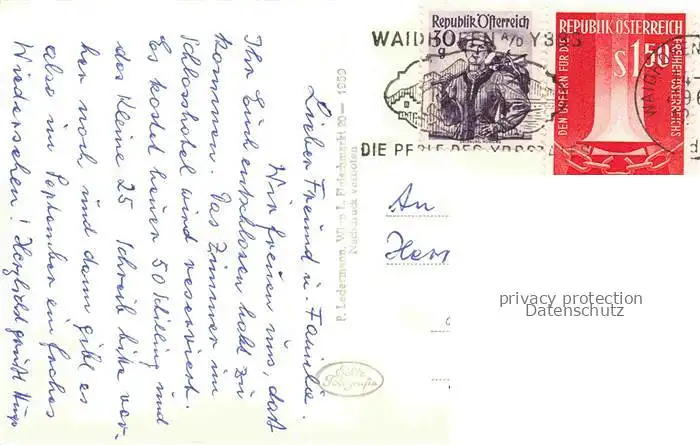 Lieber Freund u. Familie.
Wir freuen uns, dast
Ihr Euch entschlosen habt zu
kommen. Das Zimmer im
Schlosshotel wird reserviert.
Es kostet heuer 50 Schilling und
das kleine 25 Schreib bitte vor-
her noch, und dann gibt es
also im September ein frohes
Wiedersehen! Herzlichst grüsst Hugo
P. Ledermann, Wien I, Fleischmarkt 20 — 1959
Nachdruck verboten
Echte
Fotografie
WAIDHOFEN A/D YBBS
DIE PERLE DES YBBSTALES
Republik Österreich
30
g
REPUBLIK ÖSTERREICH
S 1.50
DEN OPFERN FÜR DIE
FREIHEIT ÖSTERREICHS
WAIDHOFEN
An
Herr
privacy protection
Datenschutz